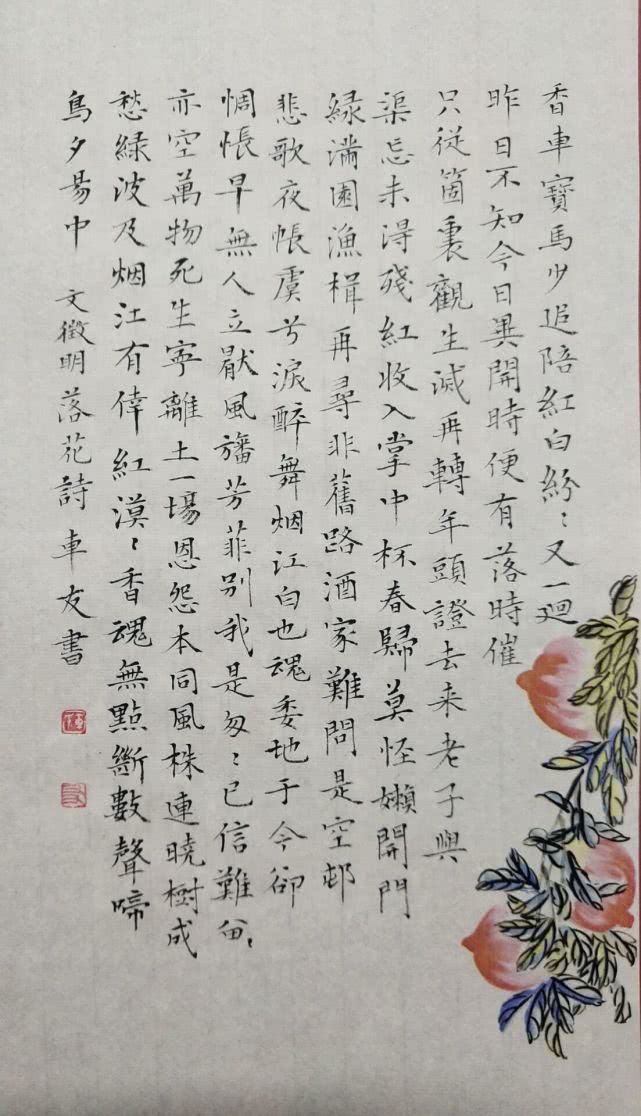 香車寶馬少追陪紅白紛〻又一廻
昨日不知今日異開時便有落時催
只從箇裏觀生滅再轉年頭證去来老子興
渠忘未得殘紅收入掌中杯春歸莫怪嬾開門
緑滿園漁楫再尋非舊路酒家難問是空邨
悲歌夜帳虞兮淚醉舞烟江白也魂委地于今卻
惆悵早無人立厭風旛芳菲別我是匆〻已信難留〻
亦空萬物死生寧離土一場恩怨本同風株連曉樹成
愁緑波及烟江有倖紅漠〻香魂無點斷數聲啼
鳥夕昜中 文徵明落花詩車友書